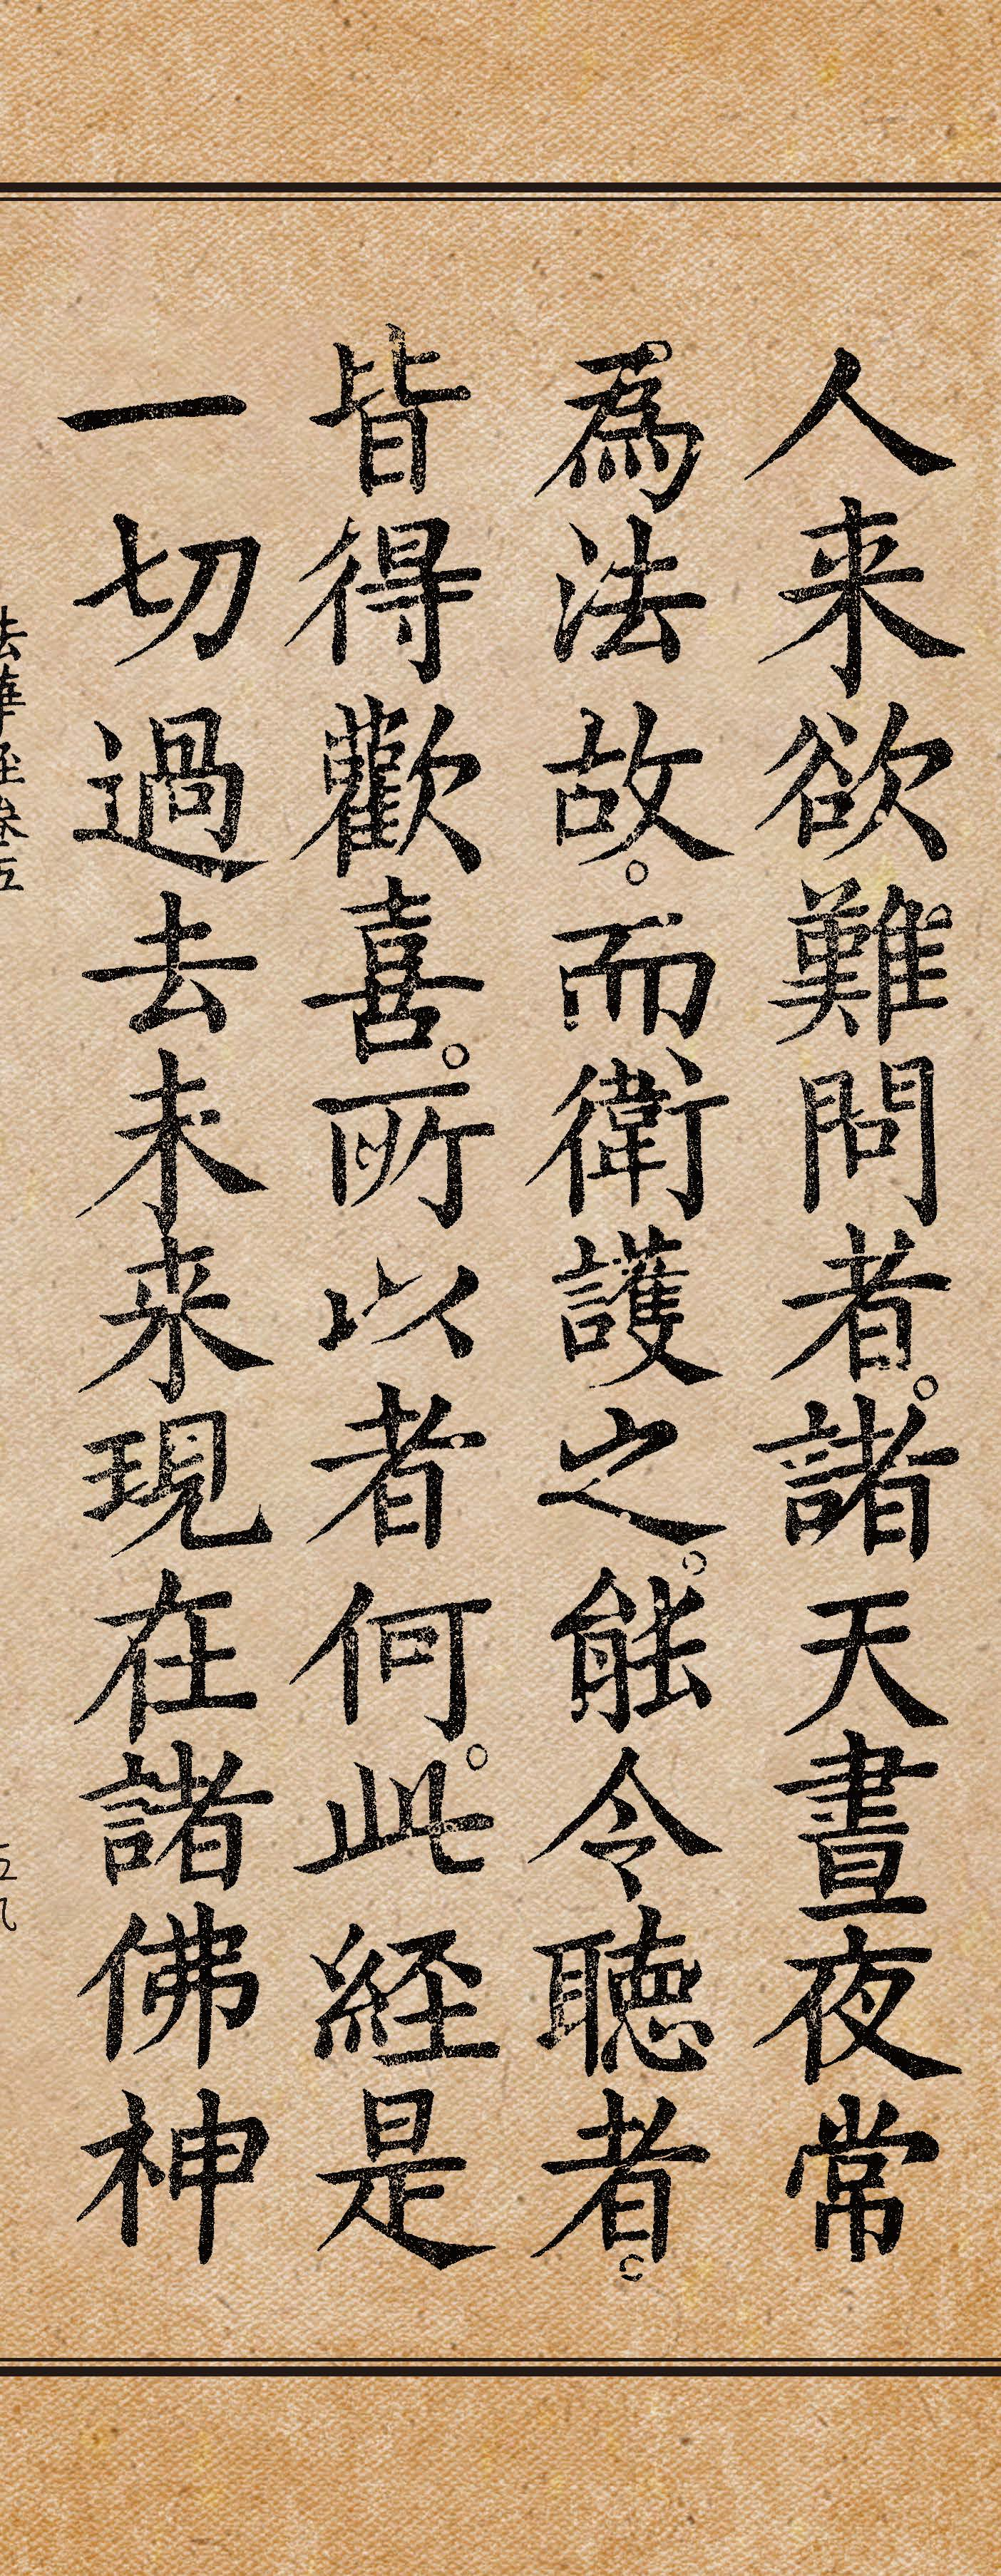 人来欲難問者。諸天晝夜常
為法故。而衛護之。能令聽者。
皆得歡喜。所以者何。此経是
一切過去未来現在諸佛神